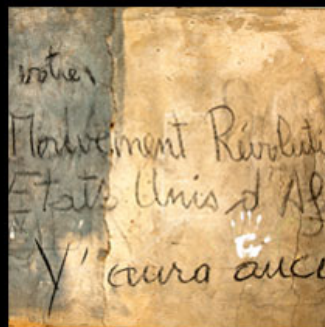 votre
Mouvement Révoluti
Etats Unis d'Af
Y'aura aucu